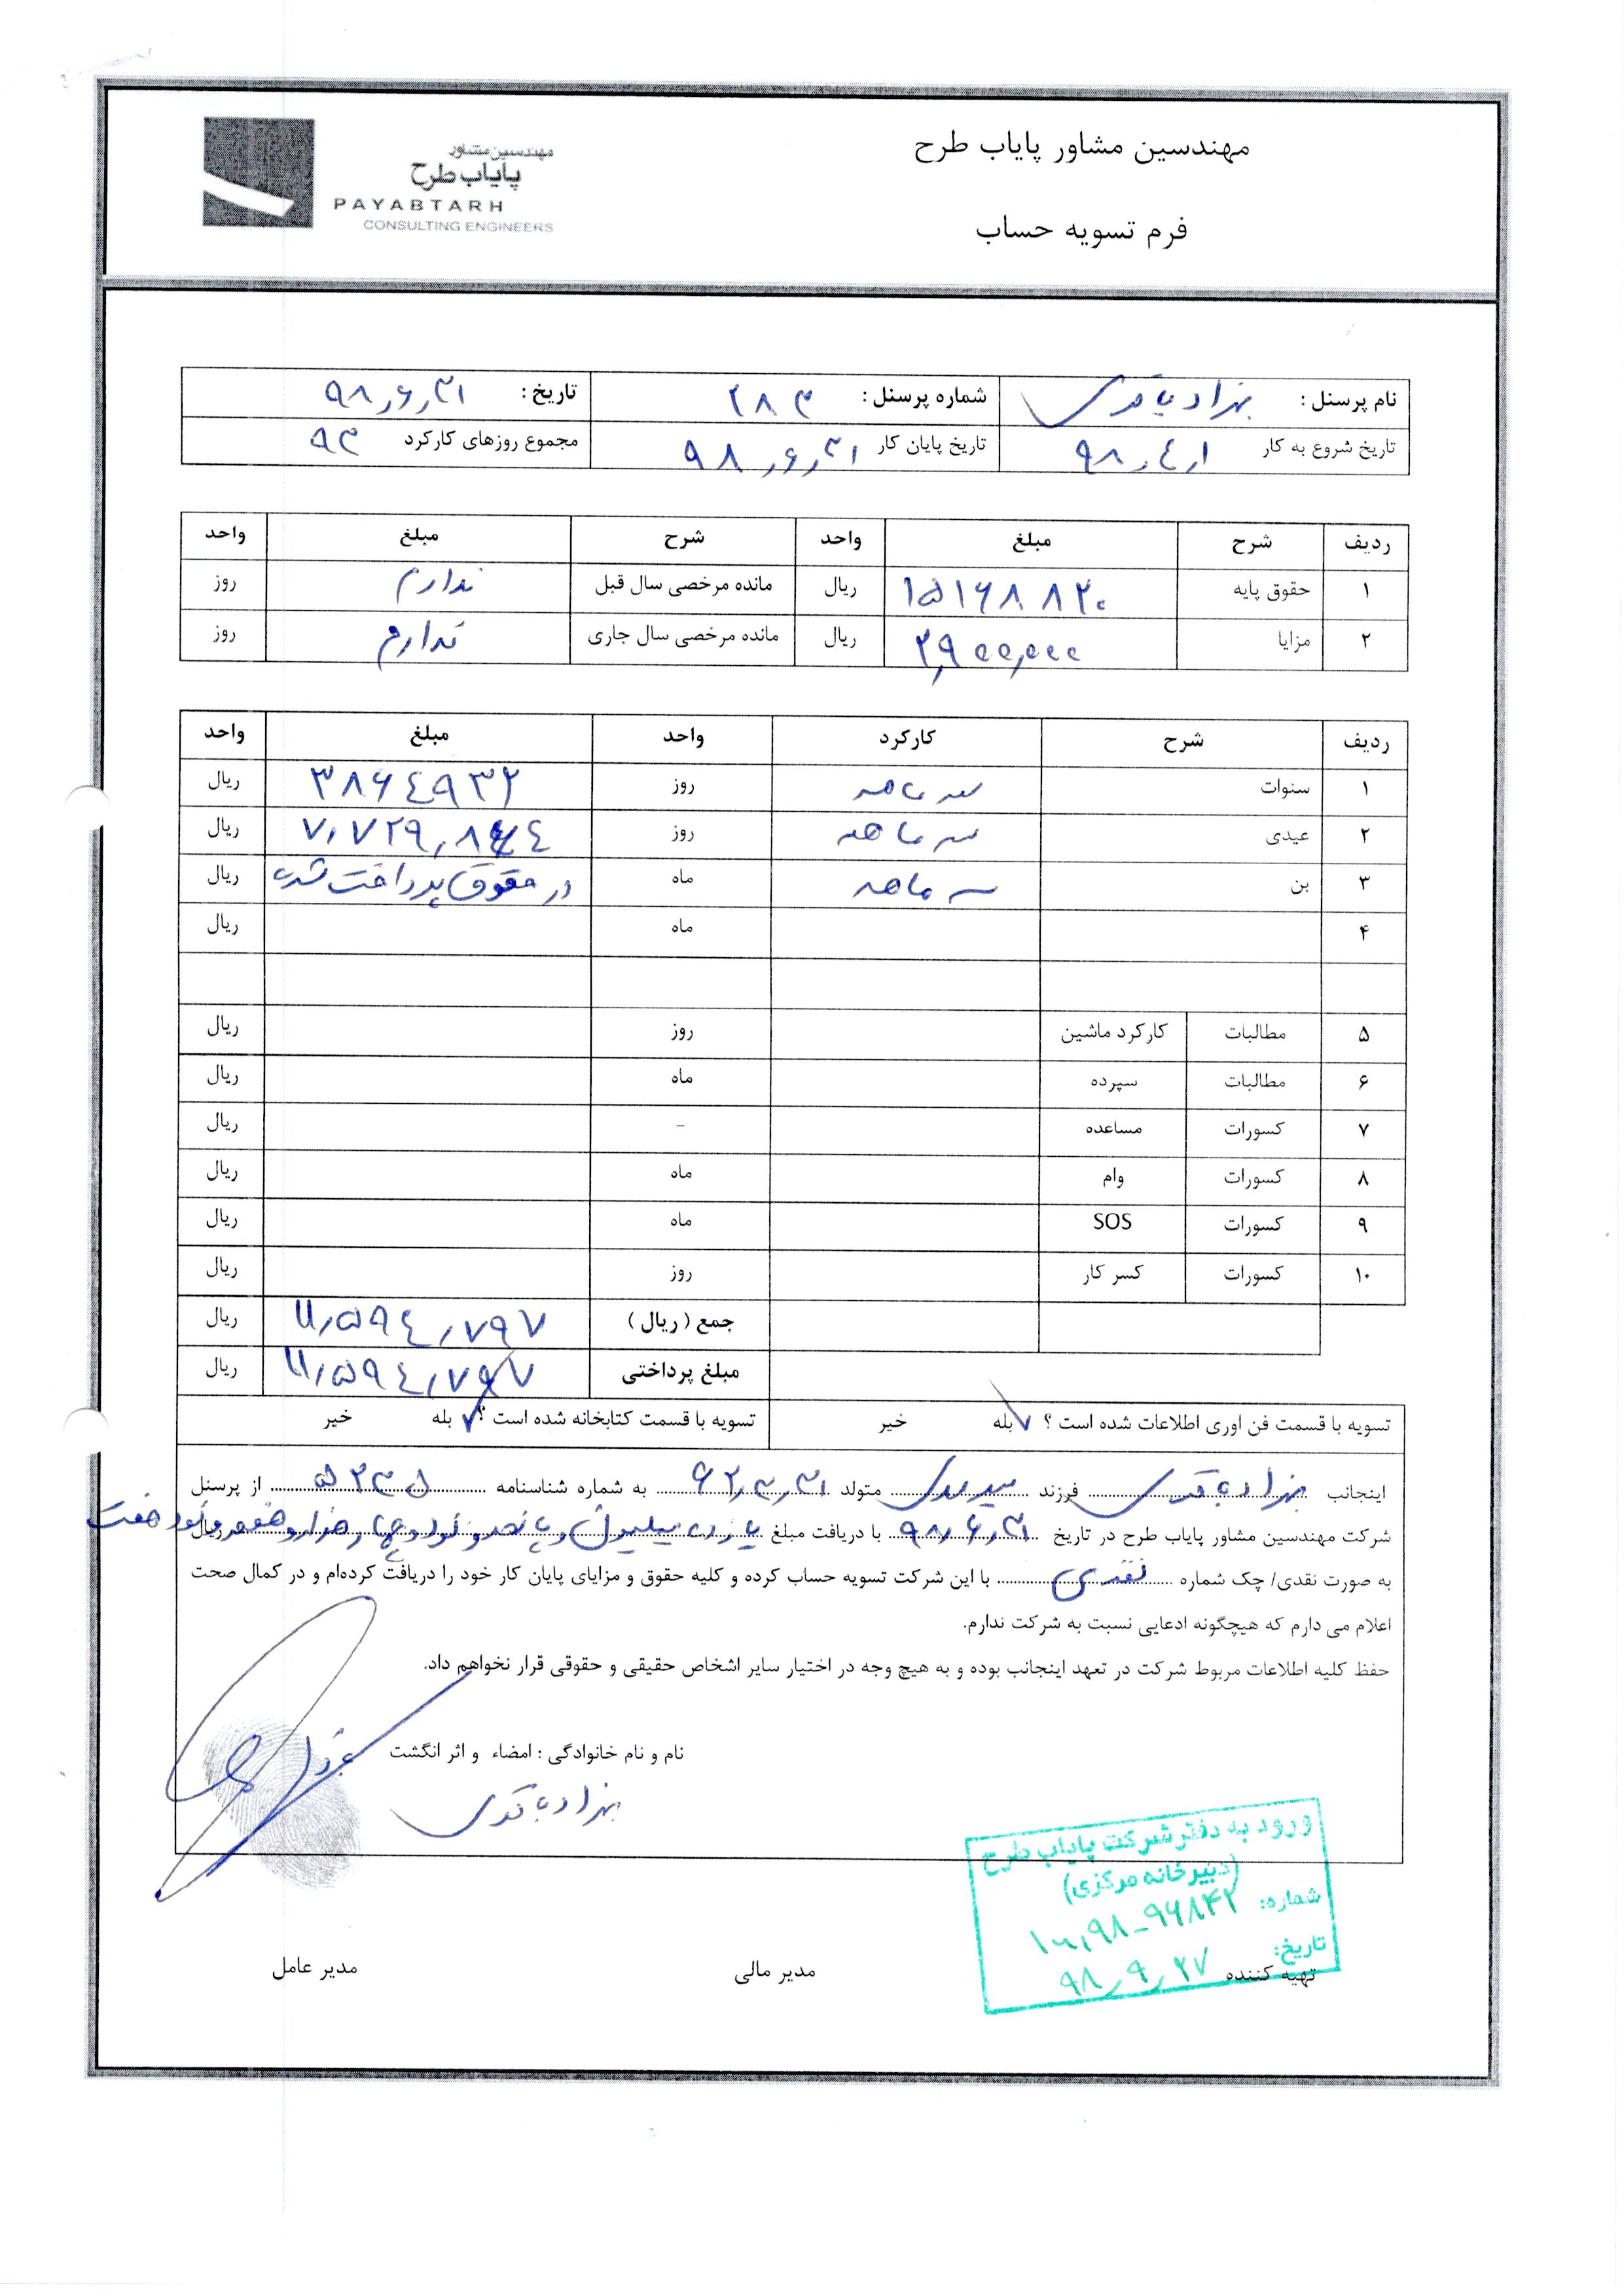 مهندسین مشاور پایاب طرح
فرم تسویه حساب
مهندسین مشاور
پایاب طرح
PAYABTARH
CONSULTING ENGINEERS
نام پرسنل : بهزاد شماره پرسنل : ۲۸۳ تاریخ : ۹۸,۶,۳۱
تاریخ شروع به کار ۹۸,٤,۱ تاریخ پایان کار ۹۸,۶,۳۱ مجموع روزهای کارکرد ۹۳
ردیف شرح مبلغ واحد شرح مبلغ واحد
۱ حقوق پایه ۱۵۱۶۸۸۲۰ ریال مانده مرخصی سال قبل ندارم روز
۲ مزایا ۲,۹۰۰,۰۰۰ ریال مانده مرخصی سال جاری ندارم روز
ردیف شرح کارکرد واحد مبلغ واحد
۱ سنوات سه ماهه روز ۳۸۶٤۹۳۲ ریال
۲ عیدی سه ماهه روز ۷,۷۲۹,۸۶٤ ریال
۳ بن سه ماهه ماه در حقوق پرداخت شده ریال
۴ ماه ریال
۵ مطالبات کارکرد ماشین روز ریال
۶ مطالبات سپرده ماه ریال
۷ کسورات مساعده - ریال
۸ کسورات وام ماه ریال
۹ کسورات SOS ماه ریال
۱۰ کسورات کسر کار روز ریال
جمع ( ریال ) ۱۱,۵۹٤,۷۹۷ ریال
مبلغ پرداختی ۱۱,۵۹٤,۷۹۷ ریال
تسویه با قسمت فن اوری اطلاعات شده است ؟ بله خیر تسویه با قسمت کتابخانه شده است ؟ بله خیر
اینجانب بهزاد فرزند متولد ۶۲,۳,۳۱ به شماره شناسنامه ۵۲۳۵ از پرسنل
شرکت مهندسین مشاور پایاب طرح در تاریخ ۹۸,۶,۳۱ با دریافت مبلغ یازده میلیون و پانصد و نود و چهار هزار و هفتصد و نود هفت ریال
به صورت نقدی/ چک شماره نقدی با این شرکت تسویه حساب کرده و کلیه حقوق و مزایای پایان کار خود را دریافت کرده‌ام و در کمال صحت
اعلام می دارم که هیچگونه ادعایی نسبت به شرکت ندارم.
حفظ کلیه اطلاعات مربوط شرکت در تعهد اینجانب بوده و به هیچ وجه در اختیار سایر اشخاص حقیقی و حقوقی قرار نخواهم داد.
نام و نام خانوادگی : امضاء و اثر انگشت
بهزاد
ورود به دفتر شرکت پایاب طرح
(دبیرخانه مرکزی)
شماره: ۱۰۰,۹۸-۹۶۸۴۲
تاریخ: ۹۸,۹,۲۷
تهیه کننده مدیر مالی مدیر عامل